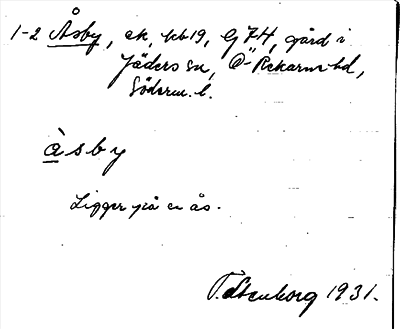 1-2 Åsby, ek, kb 19, G 74, gård i
Jäders sn, Ö-Rekarne hd,
Söderm. l.
àsby
Ligger på en ås.
1931.